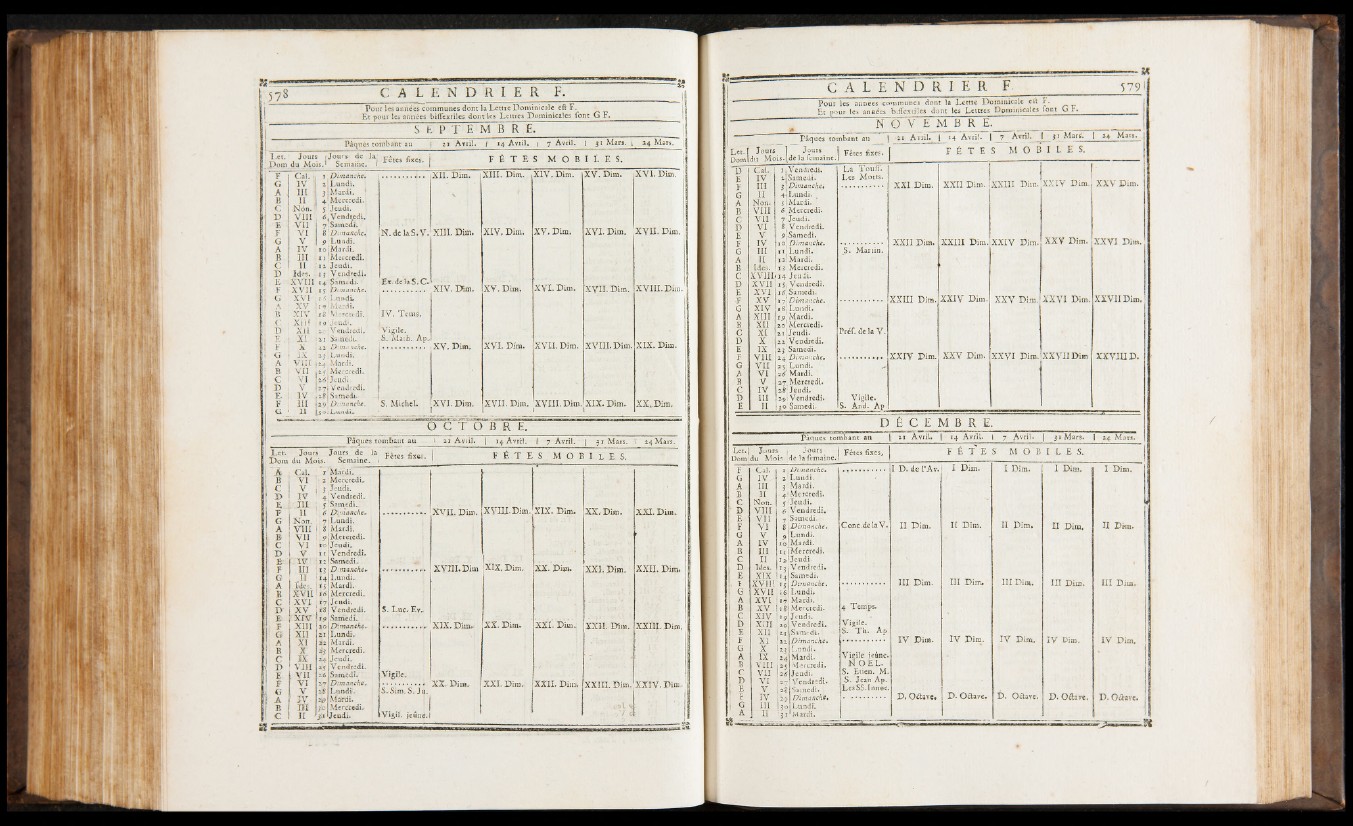 578 CALENDRIER F.
Pour les années communes dont la Lettre Dominicale eſt F.
Et pour les années biſſextiles dont les Lettres Dominicales ſont G F.
SEPTEMBRE.
Pâques tombant au 21 Avril. 14 Avril. 7 Avril. 31 Mars. 24 Mars.
Let. Jours Jours de la Fêtes fixes. FÊTES MOBILES.
Dom du Mois. Semaine.
F Cal. 1 Dimanche. XII. Dim. XIII. Dim. XIV. Dim. XV. Dim. XVI. Dim.
G IV 2 Lundi.
A III 3 Mardi.
B II 4 Mercredi.
C Non. 5 Jeudi.
D VIII 6 Vendredi.
E VII 7 Samedi.
F VI 8 Dimanche. N. de la S. V. XIII. Dim. XIV. Dim. XV. Dim. XVI. Dim. XVII. Dim.
G V 9 Lundi.
A IV 10 Mardi.
B III 11 Mercredi.
C II 12 Jeudi.
D Ides. 13 Vendredi.
E XVIII 14 Samedi. Ex. de la S. C.
F XVII 15 Dimanche. XIV. Dim. XV. Dim. XVI. Dim. XVII. Dim. XVIII. Dim.
G XVI 16 Lundi.
A XV 17 Mardi.
B XIV 18 Mercredi. IV. Tems.
C XIII 19 Jeudi.
D XII 20 Vendredi. Vigile.
E XI 21 Samedi. S. Math. Ap.
F X 22 Dimanche. XV. Dim. XVI. Dim. XVII. Dim. XVIII. Dim. XIX. Dim.
G IX 23 Lundi.
A VIII 24 Mardi.
B VII 25 Mercredi.
C VI 26 Jeudi.
D V 27 Vendredi.
E IV 28 Samedi.
F III 29 Dimanche. S. Michel. XVI. Dim. XVII. Dim. XVIII. Dim. XIX. Dim. XX. Dim.
G II 30 Lundi.
OCTOBRE.
Pâques tombant au 21 Avril. 14 Avril. 7 Avril. 31 Mars. 24 Mars.
Let. Jours Jours de la Fêtes fixes. FÊTES MOBILES.
Dom du Mois. Semaine.
A Cal. 1 Mardi.
B VI 2 Mercredi.
C V 3 Jeudi.
D IV 4 Vendredi.
E III 5 Samedi.
F II 6 Dimanche. XVII. Dim. XVIII. Dim. XIX. Dim. XX. Dim. XXI. Dim.
G Non. 7 Lundi.
A VIII 8 Mardi.
B VII 9 Mercredi.
C VI 10 Jeudi.
D V 11 Vendredi.
E IV 12 Samedi.
F III 13 Dimanche. XVIII. Dim XIX. Dim. XX. Dim. XXI. Dim. XXII. Dim.
G II 14 Lundi.
A Ides. 15 Mardi.
B XVII 16 Mercredi.
C XVI 17 Jeudi.
D XV 18 Vendredi. S. Luc. Ev.
E XIV 19 Samedi.
F XIII 20 Dimanche. XIX. Dim. XX. Dim. XXI. Dim. XXII. Dim. XXIII. Dim.
G XII 21 Lundi.
A XI 22 Mardi.
B X 23 Mercredi.
C IX 24 Jeudi.
D VIII 25 Vendredi.
E VII 26 Samedi. Vigile.
F VI 27 Dimanche. XX. Dim. XXI. Dim. XXII. Dim. XXIII. Dim. XXIV. Dim.
G V 28 Lundi. S. Sim. S. Ju.
A IV 29 Mardi.
B III 30 Mercredi.
C II 31 Jeudi. Vigil. jeûne.
CALENDRIER F 579
Pour les années communes dont la Lettre Dominicale eſt F.
Et pour les années biſſextiles dont les Lettres Dominicales ſont G F.
NOVEMBRE.
Pâques tombant au 21 Avril. 14 Avril. 7 Avril. 31 Mars. 24 Mars.
Let. Jours Jours Fêtes fixes. FÊTES MOBILES.
Dom du Mois. de la ſemaine.
D Cal. 1 Vendredi. La Touſſ.
E IV 2 Samedi. Les Morts.
F III 3 Dimanche. XXI Dim. XXII Dim. XXIII Dim. XXIV Dim. XXV Dim.
G II 4 Lundi.
A Non. 5 Mardi.
B VIII 6 Mercredi.
C VII 7 Jeudi.
D VI 8 Vendredi.
E V 9 Samedi.
F IV 10 Dimanche. XXII Dim. XXIII Dim. XXIV Dim. XXV Dim. XXVI Dim.
G III 11 Lundi. S. Martin.
A II 12 Mardi.
B Ides. 13 Mercredi.
C XVIII 14 Jeudi.
D XVII 15 Vendredi.
E XVI 16 Samedi.
F XV 17 Dimanche. XXIII Dim. XXIV Dim. XXV Dim. XXVI Dim. XXVII Dim.
G XIV 18 Lundi.
A XIII 19 Mardi.
B XII 20 Mercredi.
C XI 21 Jeudi. Préſ. de la V.
D X 22 Vendredi.
E IX 23 Samedi.
F VIII 24 Dimanche. XXIV Dim. XXV Dim. XXVI Dim. XXVII Dim XXVIII D.
G VII 25 Lundi.
A VI 26 Mardi.
B V 27 Mercredi.
C IV 28 Jeudi.
D III 29 Vendredi. Vigile.
E II 30 Samedi. S. And. Ap
DÉCEMBRE.
Pâques tombant au 21 Avril. 14 Avril. 7 Avril. 31 Mars. 24 Mars.
Let. Jours Jours Fêtes fixes. FÊTES MOBILES.
Dom du Mois de la ſemaine.
F Cal. 1 Dimanche. I D. de l'Av. I Dim. I Dim. I Dim. I Dim.
G IV 2 Lundi.
A III 3 Mardi.
B II 4 Mercredi.
C Non. 5 Jeudi.
D VIII 6 Vendredi.
E VII 7 Samedi.
F VI 8 Dimanche. Conc. de la V. II Dim. II Dim. II Dim. II Dim. II Dim.
G V 9 Lundi.
A IV 10 Mardi.
B III 11 Mercredi.
C II 12 Jeudi
D Ides. 13 Vendredi.
E XIX 14 Samedi.
F XVIII 15 Dimanche. III Dim. III Dim. III Dim. III Dim. III Dim.
G XVII 16 Lundi.
A XVI 17 Mardi.
B XV 18 Mercredi. 4 Temps.
C XIV 19 Jeudi.
D XIII 20 Vendredi. Vigile.
E XII 21 Samedi. S. Th. Ap
F XI 22 Dimanche. IV Dim. IV Dim. IV Dim. IV Dim. IV Dim.
G X 23 Lundi.
A IX 24 Mardi. Vigile jeûne.
B VIII 25 Mercredi. NOEL.
C VII 26 Jeudi. S. Etien. M.
D VI 27 Vendredi. S. Jean Ap.
E V 28 Samedi. Les SS. Innoc.
F IV 29 Dimanche. D. Octave. D. Octave. D. Octave. D. Octave. D. Octave.
G III 30 Lundi.
A II 31 Mardi.